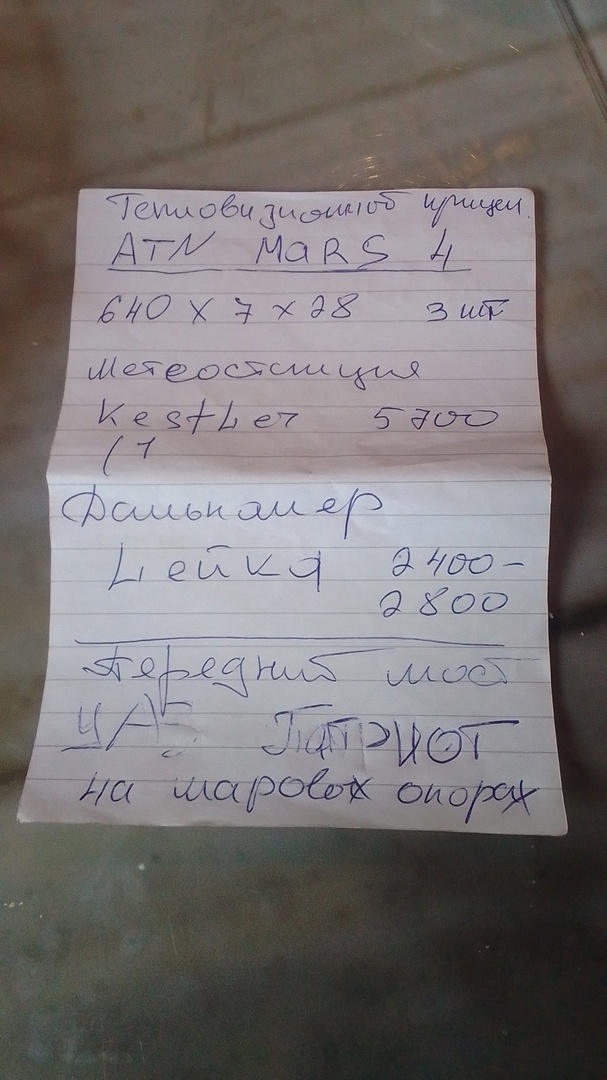 Тепловизионной прицел.
ATN MaRS 4
640 x 7 x 28 3 шт
Метеостанция
KestLer 5700
(1
Дальномер
Lейка 2400-
2800
Передний мост
УАЗ ПатРИОТ
на шаровох опорах